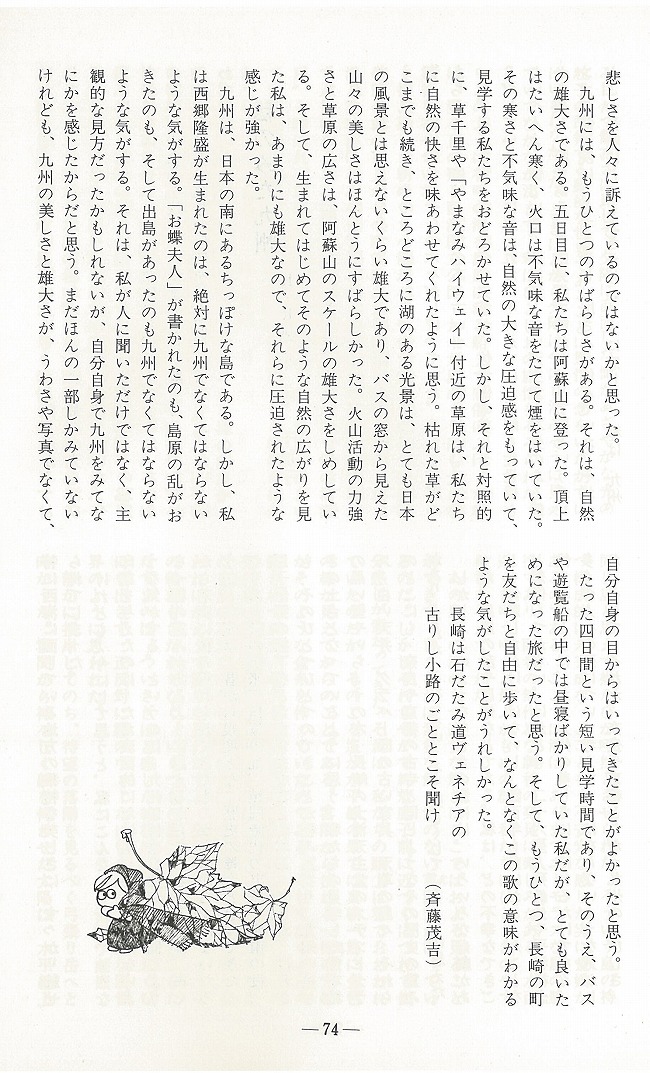 悲しさを人々に訴えているのではないかと思った。
九州には、もうひとつのすばらしさがある。それは、自然
の雄大さである。五日目に、私たちは阿蘇山に登った。頂上
はたいへん寒く、火口は不気味な音をたてて煙をはいていた。
その寒さと不気味な音は、自然の大きな圧迫感をもっていて、
見学する私たちをおどろかせていた。しかし、それと対照的
に、草千里や「やまなみハイウェイ」付近の草原は、私たち
に自然の快さを味あわせてくれたように思う。枯れた草がど
こまでも続き、ところどころに湖のある光景は、とても日本
の風景とは思えないくらい雄大であり、バスの窓から見えた
山々の美しさはほんとうにすばらしかった。火山活動の力強
さと草原の広さは、阿蘇山のスケールの雄大さをしめしてい
る。そして、生まれてはじめてそのような自然の広がりを見
た私は、あまりにも雄大なので、それらに圧迫されたような
感じが強かった。
九州は、日本の南にあるちっぽけな島である。しかし、私
は西郷隆盛が生まれたのは、絶対に九州でなくてはならない
ような気がする。「お蝶夫人」が書かれたのも、島原の乱がお
きたのも、そして出島があったのも九州でなくてはならない
ような気がする。それは、私が人に聞いただけではなく、主
観的な見方だったかもしれないが、自分自身で九州をみてな
にかを感じたからだと思う。まだほんの一部しかみていない
けれども、九州の美しさと雄大さが、うわさや写真でなくて、
自分自身の目からはいってきたことがよかったと思う。
たった四日間という短い見学時間であり、そのうえ、バス
や遊覧船の中では昼寝ばかりしていた私だが、とても良いた
めになった旅だったと思う。そして、もうひとつ、長崎の町
を友だちと自由に歩いて、なんとなくこの歌の意味がわかる
ような気がしたことがうれしかった。
長崎は石だたみ道ヴェネチアの
古りし小路のごととこそ聞け
（斉藤茂吉）
―74―